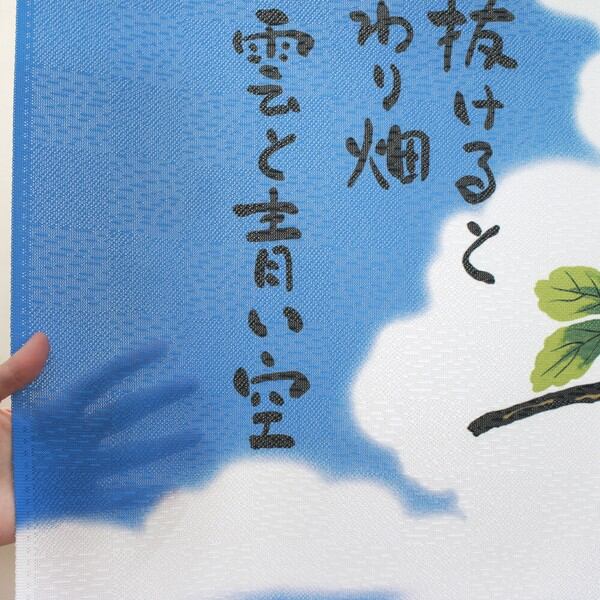 抜けると
わり畑
雲と青い空